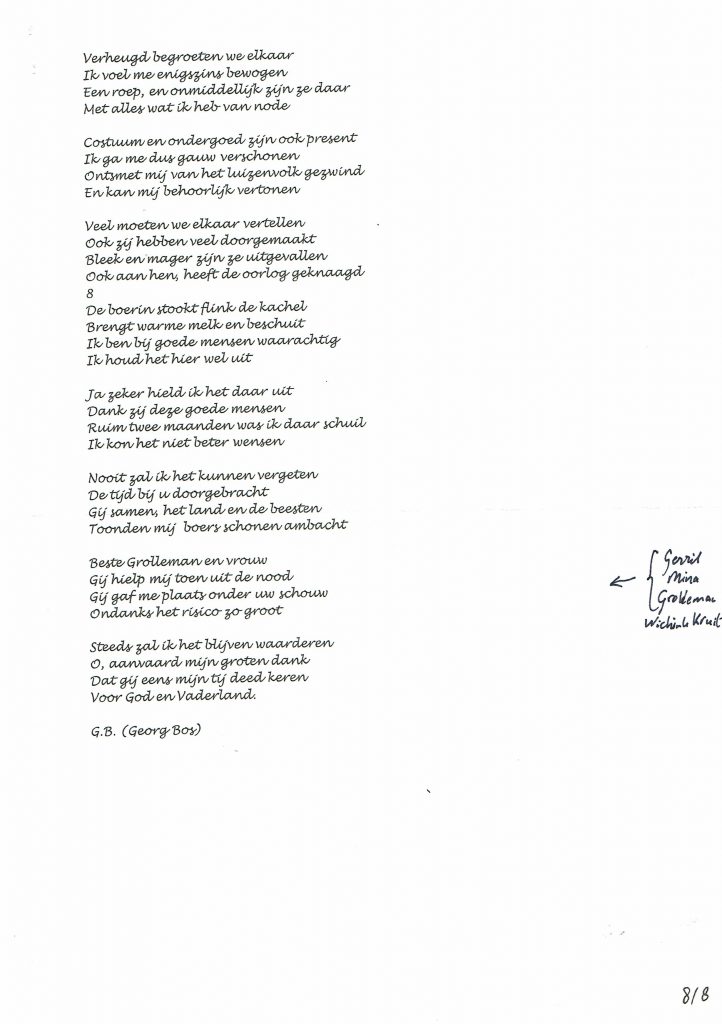 Verheugd begroeten we elkaar
Ik voel me enigszins bewogen
Een roep, en onmiddellijk zijn ze daar
Met alles wat ik heb van node

Costuum en ondergoed zijn ook present
Ik ga me dus gauw verschonen
Ontsmet mij van het luizenvolk gezwind
En kan mij behoorlijk vertonen

Veel moeten we elkaar vertellen
Ook zij hebben veel doorgemaakt
Bleek en mager zijn ze uitgevallen
Ook aan hen, heeft de oorlog geknaagd
8
De boerin stookt flink de kachel
Brengt warme melk en beschuit
Ik ben bij goede mensen waarachtig
Ik houd het hier wel uit

Ja zeker hield ik het daar uit
Dank zij deze goede mensen
Ruim twee maanden was ik daar schuil
Ik kon het niet beter wensen

Nooit zal ik het kunnen vergeten
De tijd bij u doorgebracht
Gij samen, het land en de beesten
Toonden mij boers schonen ambacht

Beste Grolleman en vrouw
Gij hielp mij toen uit de nood
Gij gaf me plaats onder uw schouw
Ondanks het risico zo groot

Steeds zal ik het blijven waarderen
O, aanvaard mijn groten dank
Dat gij eens mijn tij deed keren
Voor God en Vaderland.

G.B. (Georg Bos)

← { Gerrit
Mina
Grolleman
Wichink Kruit

8/8